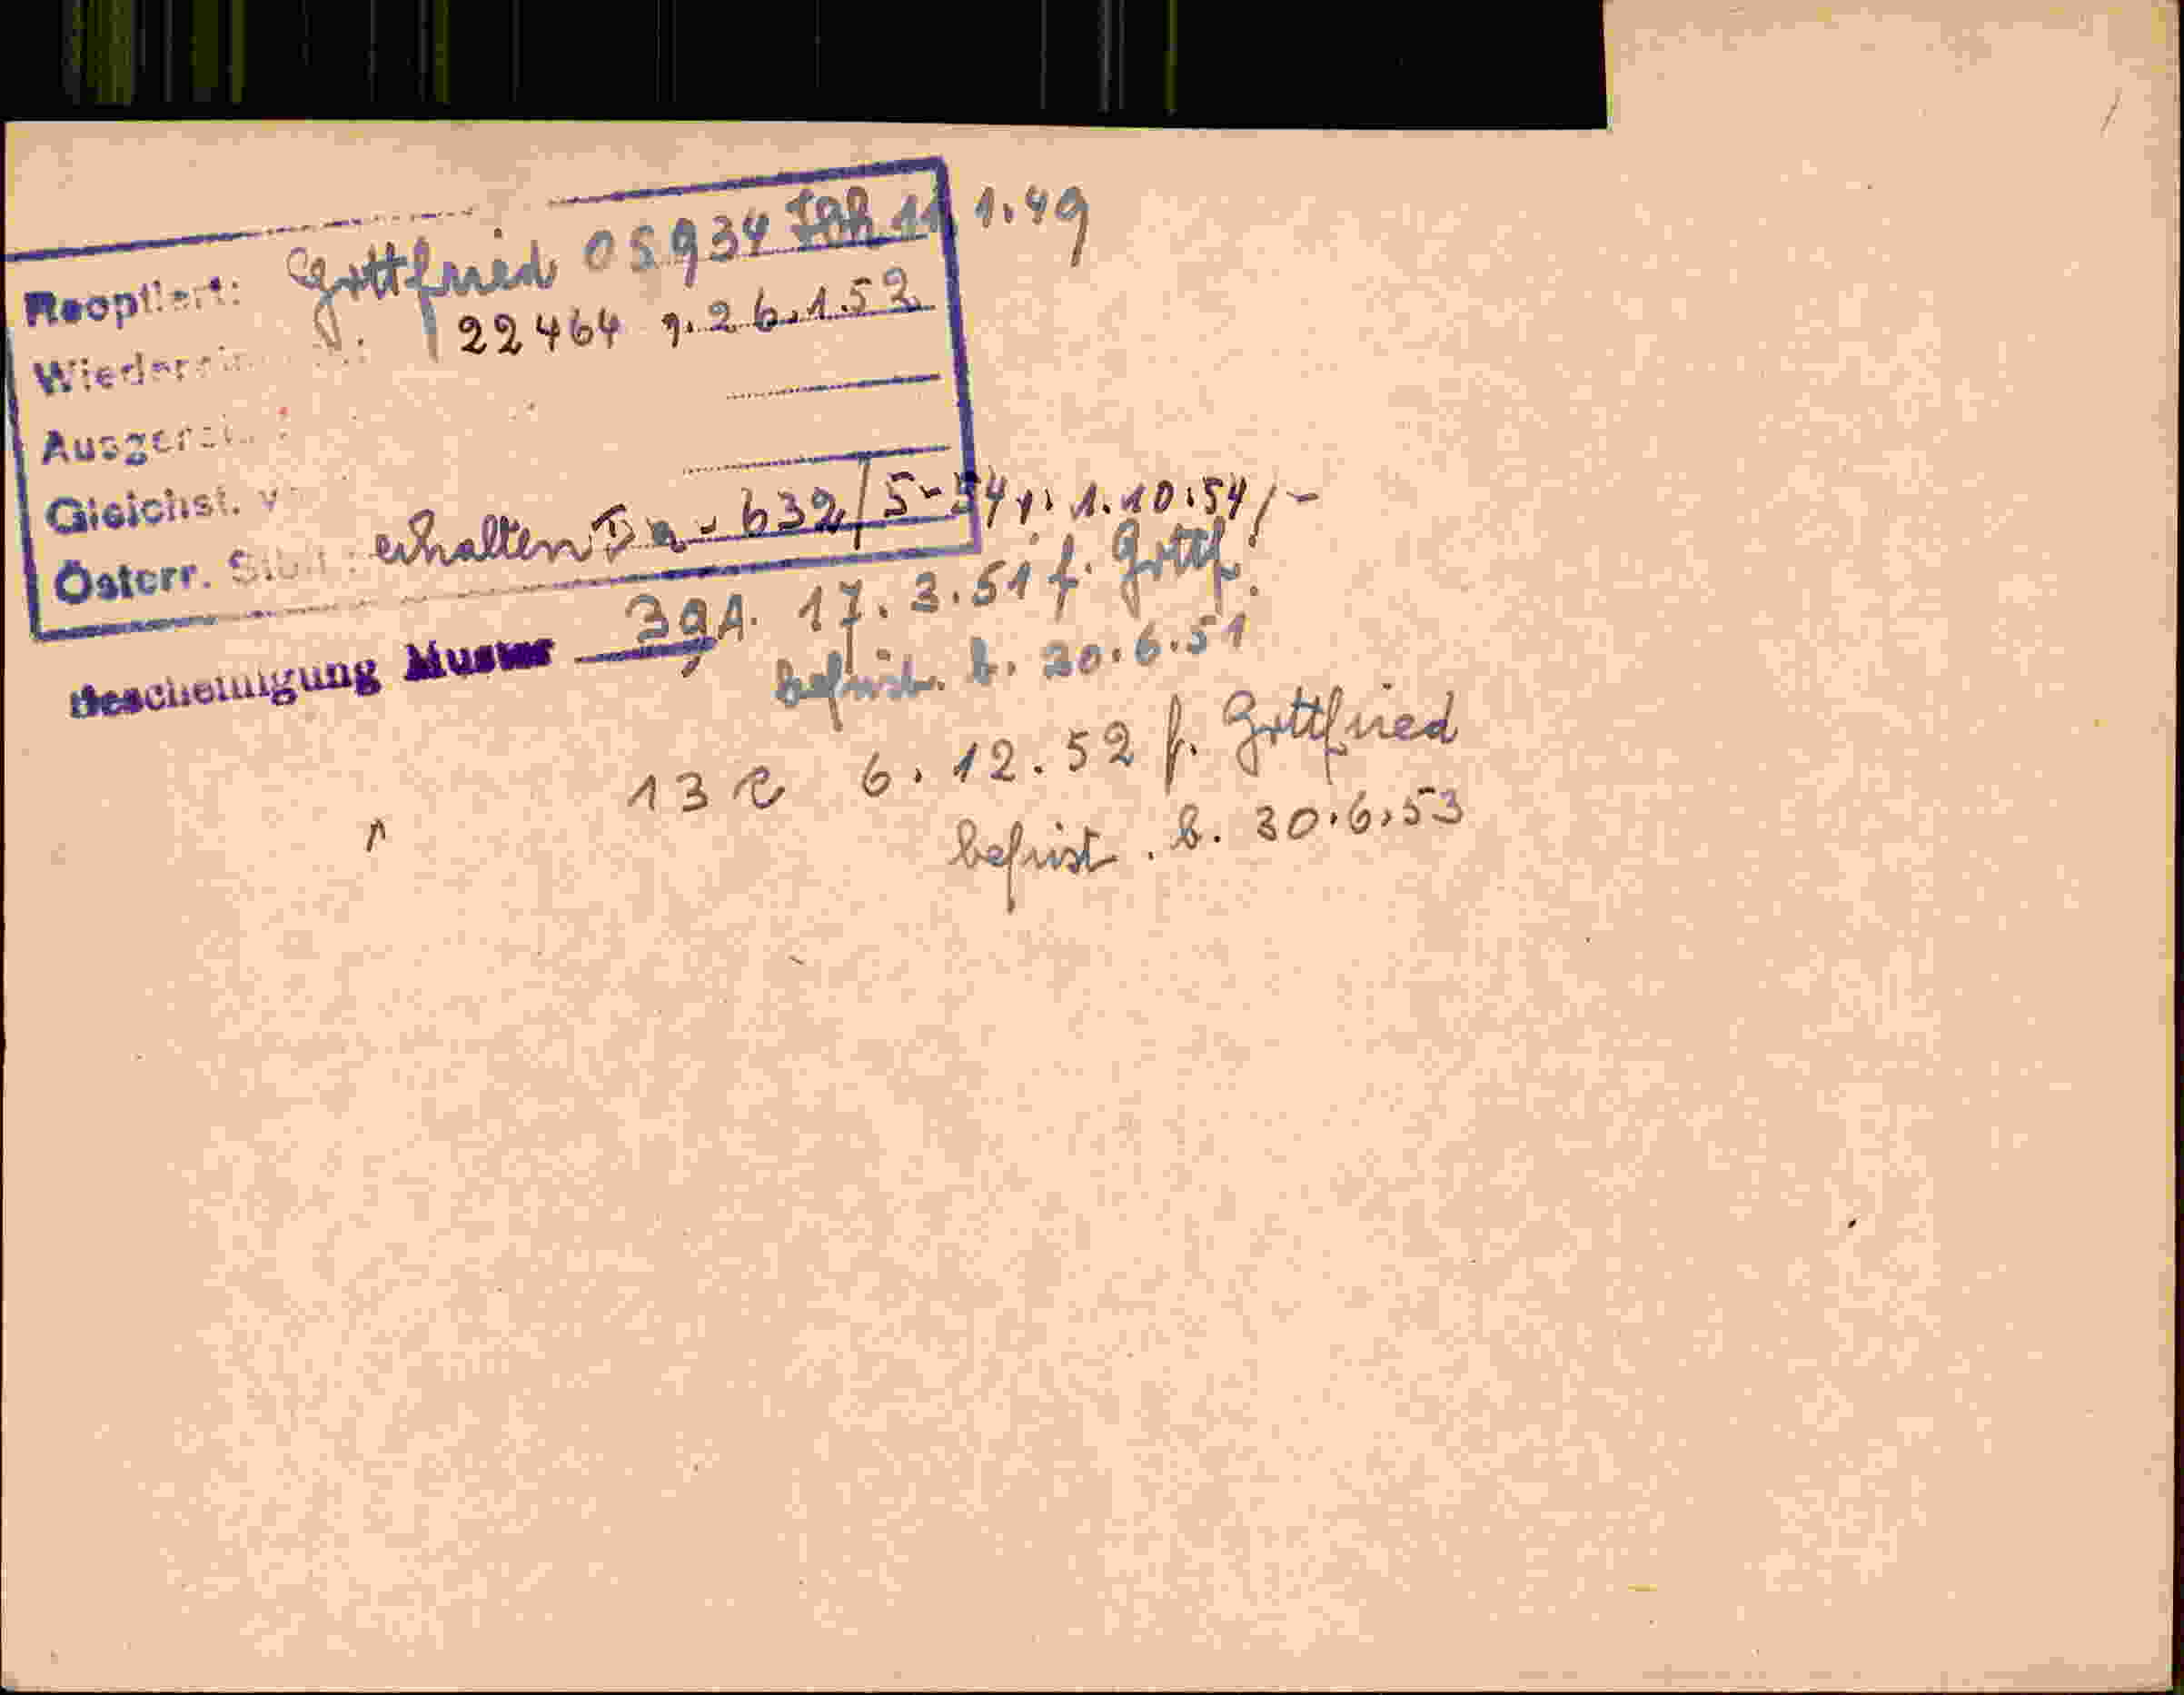 Reoptiert: Gottfried 05934 11 1.49
22464 v. 26.1.52
Gleichst.
Österr. erhalten Ia - 632/5-54 v. 1.10.54/-
Bescheinigung Muster 39A. 17.3.51 f. Gottf.
befrist. b. 30.6.51
13 e 6.12.52 f. Gottfried
befrist. b. 30.6.53